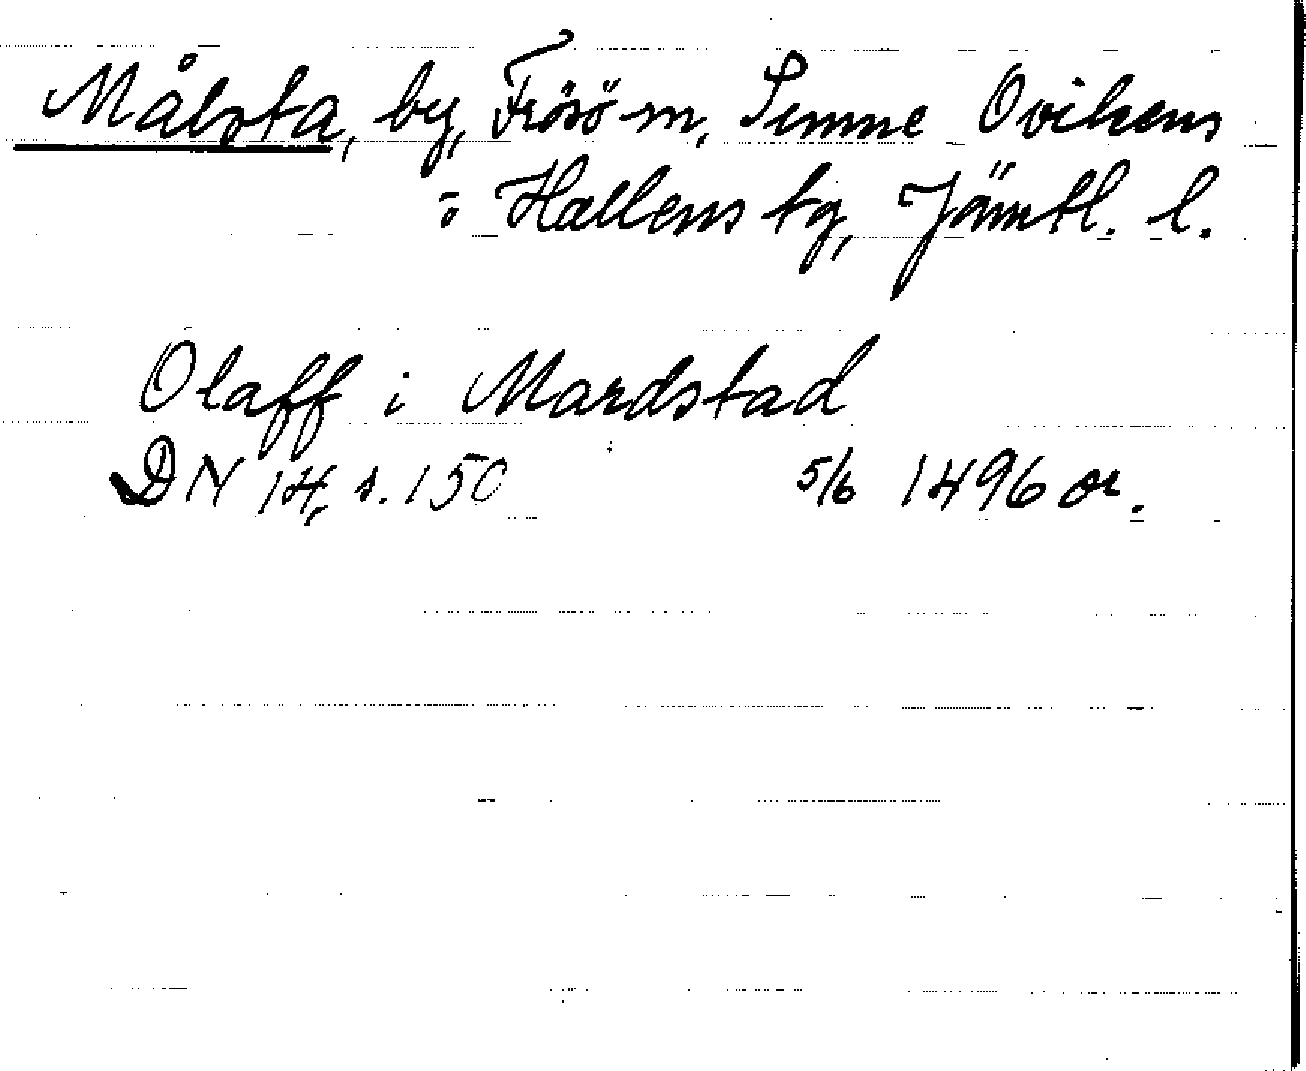 Målsta, by, Frösö m, Sunne Ovikens
o Hallens tg, Jämtl. l.
Olaff i Mardstad
DN 14, s. 150 5/6 1496 or.